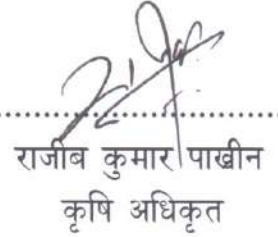 राजीब कुमार पाखीन
कृषि अधिकृत